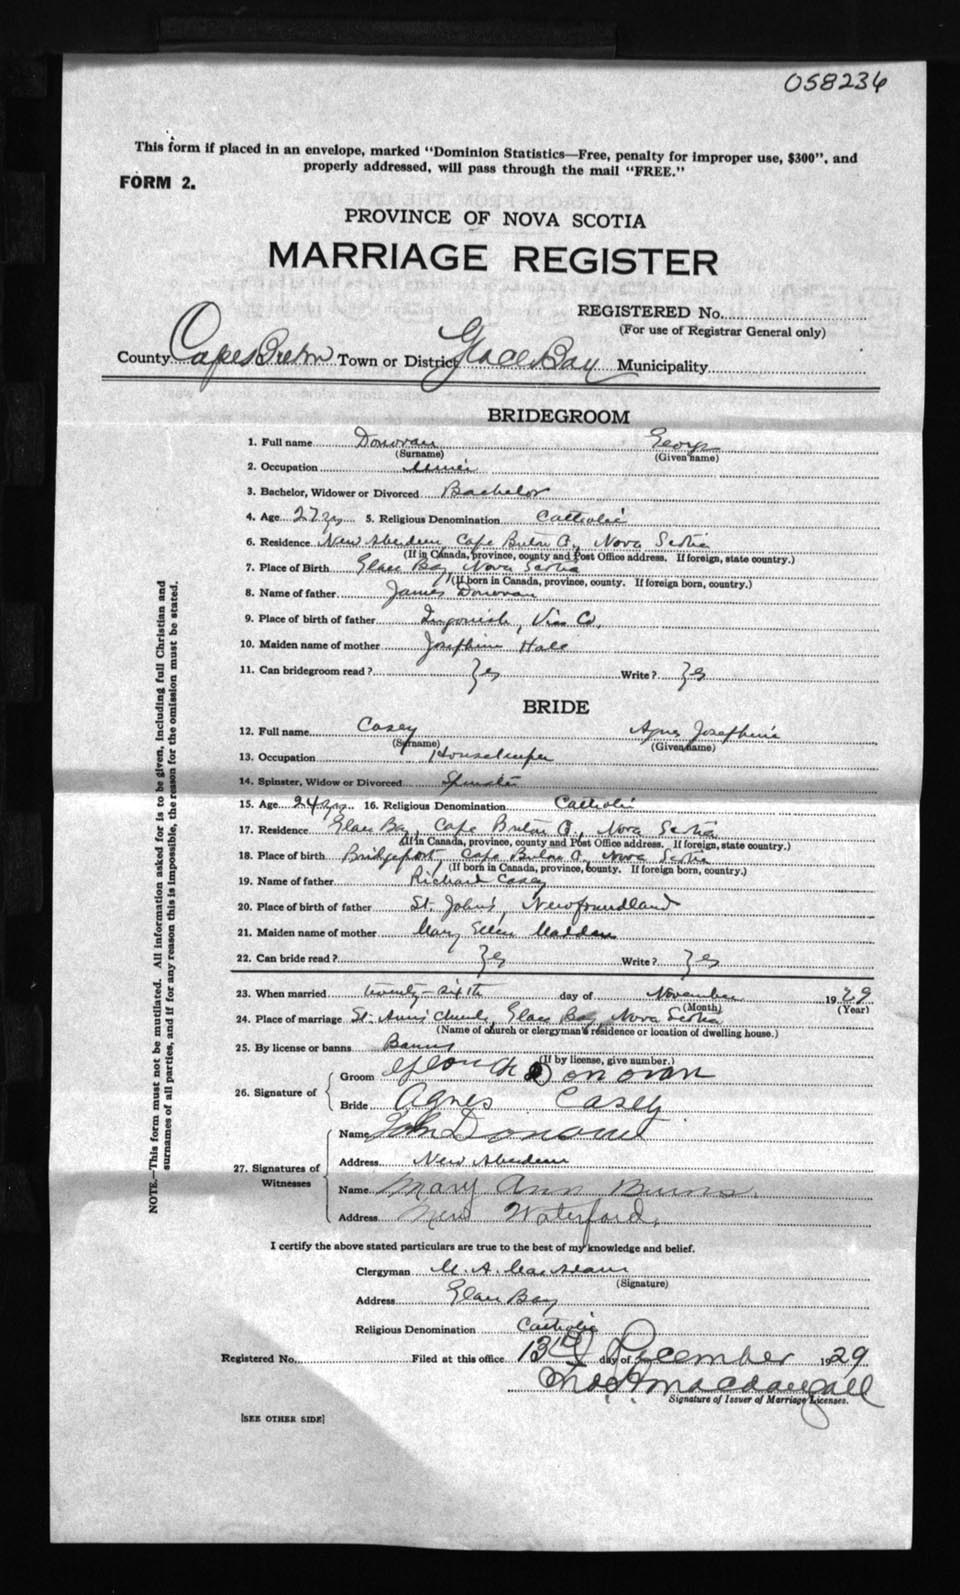 058236
This form if placed in an envelope, marked "Dominion Statistics—Free, penalty for improper use, $300", and
properly addressed, will pass through the mail "FREE."
FORM 2.
PROVINCE OF NOVA SCOTIA
MARRIAGE REGISTER
REGISTERED No.
(For use of Registrar General only)
County Cape Breton Town or District Glace Bay Municipality
BRIDEGROOM
1. Full name Donovan George
(Surname) (Given name)
2. Occupation Miner
3. Bachelor, Widower or Divorced Bachelor
4. Age 27 yrs 5. Religious Denomination Catholic
6. Residence New Aberdeen Cape Breton Co, Nova Scotia
(If in Canada, province, county and Post Office address. If foreign, state country.)
7. Place of Birth Glace Bay, Nova Scotia
(If born in Canada, province, county. If foreign born, county.)
8. Name of father James Donovan
9. Place of birth of father Ingonish, Vic Co.
10. Maiden name of mother Josephine Hall
11. Can bridegroom read? Yes Write? Yes
BRIDE
12. Full name Casey Agnes Josephine
(Surname) (Given name)
13. Occupation Housekeeper
14. Spinster, Widow or Divorced Spinster
15. Age 24 yrs 16. Religious Denomination Catholic
17. Residence Glace Bay, Cape Breton Co, Nova Scotia
(If in Canada, province, county and Post Office address. If foreign, state country.)
18. Place of birth Bridgeport, Cape Breton Co, Nova Scotia
(If born in Canada, province, county. If foreign born, county.)
19. Name of father Richard Casey
20. Place of birth of father St. John's, Newfoundland
21. Maiden name of mother Mary Ellen Madden
22. Can bride read? Yes Write? Yes
23. When married twenty-sixth day of November 1929
(Month) (Year)
24. Place of marriage St. Ann's Church, Glace Bay, Nova Scotia
(Name of church or clergyman's residence or location of dwelling house.)
25. By license or banns Banns
(If by license, give number.)
26. Signature of
Groom Donovan
Bride Agnes Casey
27. Signatures of Witnesses
Name John Donovan
Address New Aberdeen
Name Mary Ann Burns.
Address New Waterford.
I certify the above stated particulars are true to the best of my knowledge and belief.
Clergyman M. A. MacAdam
(Signature)
Address Glace Bay
Religious Denomination Catholic
Registered No. Filed at this office 13th day of December 1929
MacDougall
Signature of Issuer of Marriage Licenses.
[SEE OTHER SIDE]
NOTE.—This form must not be mutilated. All information asked for is to be given, including full Christian and
surnames of all parties, and if for any reason this is impossible, the reason for the omission must be stated.